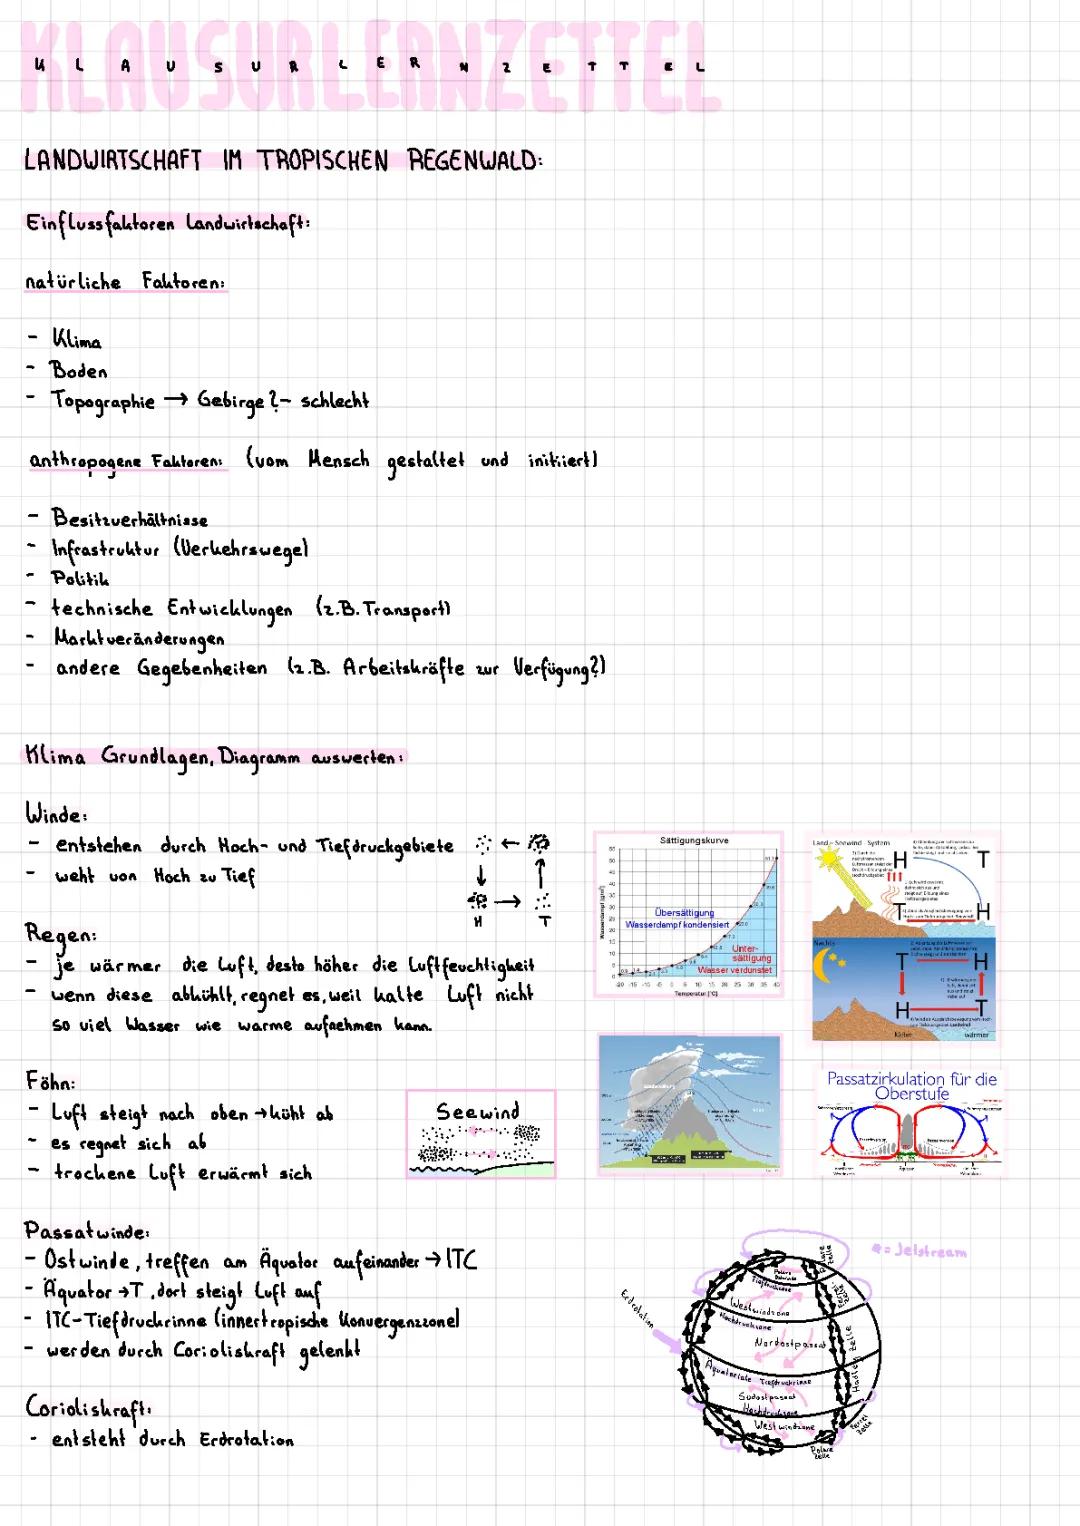 KLAUSURLERNZETTEL
KLAUSURLERNZETTEL
LANDWIRTSCHAFT IM TROPISCHEN REGENWALD:
Einflussfaktoren Landwirtschaft:
natürliche Faktoren:
- Klima
- Boden
- Topographie → Gebirge?- schlecht
anthropogene Faktoren: (vom Mensch gestaltet und initiiert)
- Besitzverhältnisse
- Infrastruktur (Verkehrswege)
- Politik
- technische Entwicklungen (z.B. Transport)
- Marktveränderungen
- andere Gegebenheiten (z.B. Arbeitskräfte zur Verfügung?)
Klima Grundlagen, Diagramm auswerten:
Winde:
- entstehen durch Hoch- und Tiefdruckgebiete
- weht von Hoch zu Tief
H T
Regen:
- je wärmer die Luft, desto höher die Luftfeuchtigkeit
- wenn diese abkühlt, regnet es, weil kalte Luft nicht
so viel Wasser wie warme aufnehmen kann.
Föhn:
- Luft steigt nach oben → kühlt ab
- es regnet sich ab
- trockene Luft erwärmt sich
Seewind
Passatwinde:
- Ostwinde, treffen am Äquator aufeinander → ITC
- Äquator → T, dort steigt Luft auf
- ITC-Tiefdruckrinne (innertropische Konvergenzzone)
- werden durch Corioliskraft gelenkt
Corioliskraft:
- entsteht durch Erdrotation
Sättigungskurve
Wasserdampf [g/m³]
Übersättigung
Wasserdampf kondensiert
Unter-
sättigung
Wasser verdunstet
-20 -15 -10 -5 0 5 10 15 20 25 30 35 40
Temperatur [°C]
Land - Seewind - System
H T
T H
Nachts
T H
H T
kälter wärmer
Passatzirkulation für die
Oberstufe
Äquator
= Jetstream
Erdrotation
Polare
Zelle
Tiefdruckrinne
Westwindzone
Hochdruckzone
Nordostpassat
Äquatoriale Tiefdruckrinne
Südostpassat
Hochdruckzone
Westwindzone
Hadley Zelle
Ferrel
Zelle
Polare
Zelle